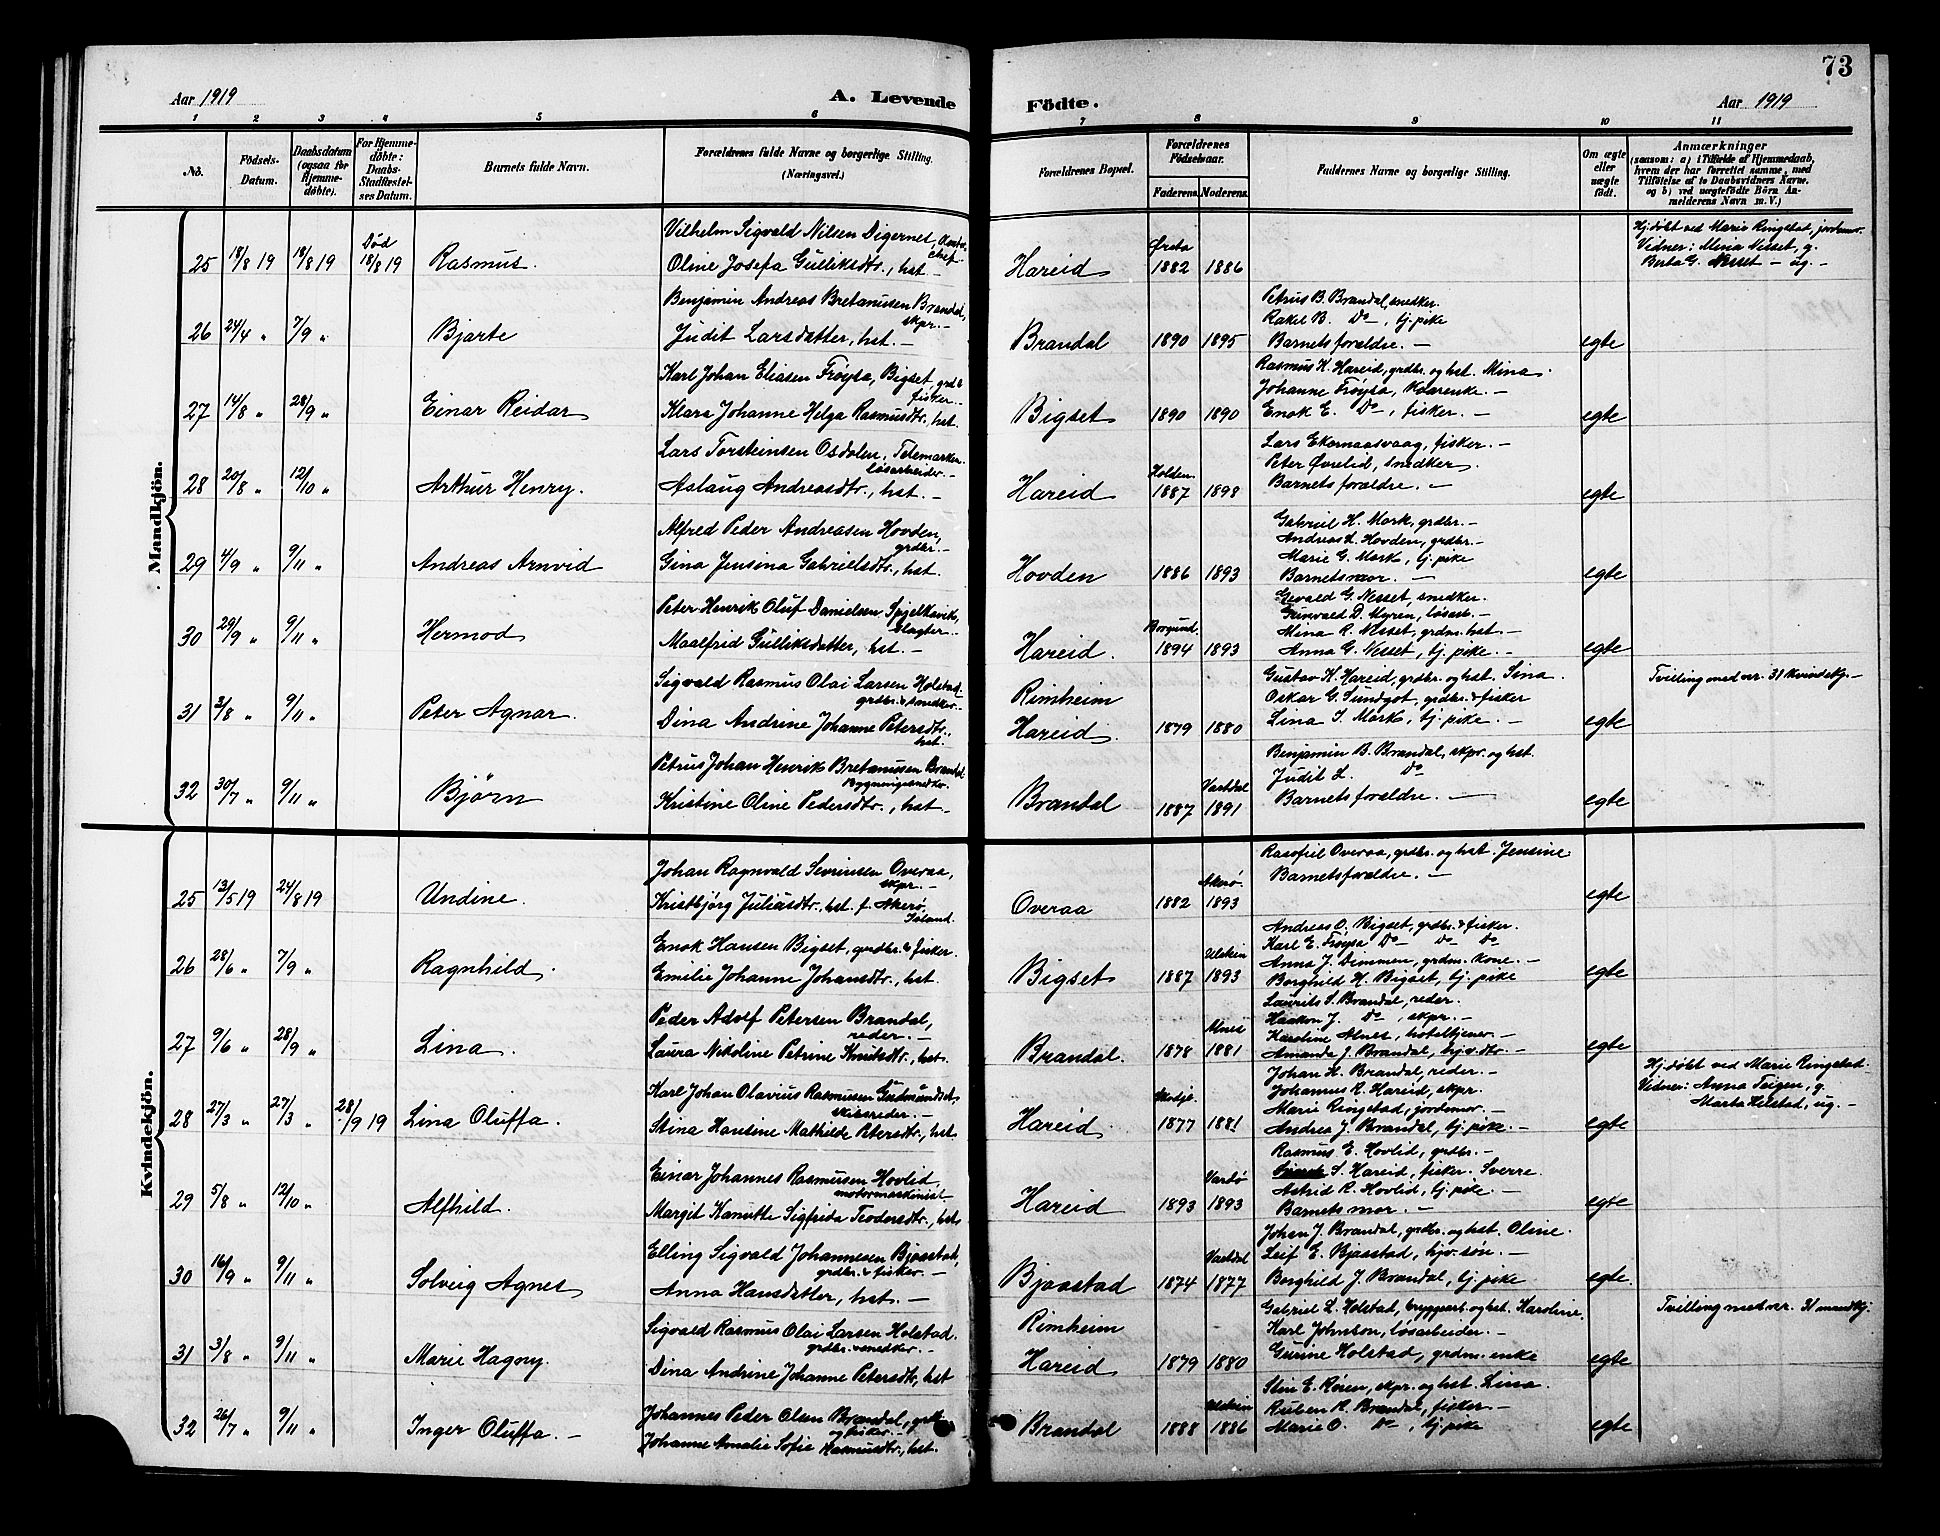 73
Aar 1919
A. Levende
Födte.
Aar 1919
1 2 3 4 5 6 7 8 9 10 11
No.
Födsels-Datum.
Daabsdatum (ogsaa for Hjemme-döbte).
For Hjemme-döbte: Daabs-Stadfæstel-ses Datum.
Barnets fulde Navn.
Forældrenes fulde Navne og borgerlige Stilling.
(Næringsvei.)
Forældrenes Bopæl.
Forældrenes Födselsaar.
Faderens. Moderens.
Faddernes Navne og borgerlige Stilling.
Om ægte eller uægte födt.
Anmærkninger
(saasom: a) i Tilfælde af Hjemmedaab, hvem der har forrettet samme, med Tilföielse af to Daabsvidners Navne, og b) ved uægtefödte Börn An-melderens Navn m. V.)
Mandkjön.
25 18/8 19 18/8 19 Död 18/8 19 Rasmus.
Vilhelm Sigvald Nilsen Digernet,
Oline Josefa Gulliksdtr., hst. –
Hareid Ørsta 1882 1886
Hj.döbt ved Marie Ringstad, jordemor.
Vidner: Mina Nesset, g.
Berta G. Nesset – ug. –
26 24/4 " 7/9 " Bjarte
Benjamin Andreas Bretanussen Brandal, skpr. –
Judit Larsdatter, hst. –
Brandal 1890 1895
Petrus B. Brandal, snedker.
Rakel B. Do –, tj. pike
Barnets forældre. –
egte
27 14/8 " 28/9 " Einar Reidar
Karl Johan Eliasen Fröysa, Bigset, grdbr. fisker. –
Klara Johanne Helga Rasmusdtr., hst.
Bigset 1890 1890
Rasmus K. Hareid, grdbr. og hst. Mina.
Johanne Fröysa, Kaarenke. –
Enok E. Do –, fisker. –
egte
28 20/8 " 12/10 " Arthur Henry.
Lars Torsteinsen Osdalen, Telemarken. lösarbeider. –
Aslaug Andreasdtr., hst. –
Hareid Holden. 1887 1898
Lars Ekornaasvaag, fisker. –
Peter Øvrelid, snedker.
Barnets forældre. –
egte
29 4/9 " 9/11 " Andreas Arnvid
Alfred Peder Andreasen Hovden, grdbr. –
Gina Jensina Gabrielsdtr., hst.
Hovden 1886 1893
Gabriel H. Mork, grdbr. –
Andreas L. Hovden, grdbr. –
Marie G. Mork, tj. pike
Barnets mor. –
egte
30 29/9 " 9/11 " Hermod
Peter Henrik Oluf Danielsen Spjelkavik, Slagter. –
Maalfrid Gulliksdatter, hst. –
Hareid. Borgund. 1894 1893
Sevald G. Nesset, snedker.
Grinvald D. Myren, lösarb. –
Mina R. Nesset, grdm. hst. –
Anna G. Nesset, tj. pike. –
egte
31 3/8 " 9/11 " Peter Agnar.
Sigvald Rasmus Olai Larsen Holstad. grdbr. & snedker. –
Dina Andrine Johanne Petersdtr., hst.
Rimheim
Hareid. 1879 1880
Gustav K. Hareid, grdbr. og hst. Sina.
Oskar G. Sundgot, grdbr. & fisker
Lina S. Mork, tj. pike. –
egte
Tvilling med nr. 31 kvindekj. –
32 30/7 " 9/11 " Björn
Petrus Johan Henrik Bretanussen Brandal. Bygningssnedker. –
Kristine Oline Pedersdtr., hst –
Brandal 1887 Vartdal 1891
Benjamin B. Brandal, skpr. og hst.
Judit L. Do
Barnets forældre. –
egte
Kvindekjön.
25 13/5 19 24/8 19 Undine.
Johan Ragnvald Severinsen Overaa, skpr. –
Kristbjörg Júliusdtr., hst. f. Akerö, Island.
Overaa 1882 Akerö. 1893
Overaa, grdbr. og hst. Jensine
Barnets forældre. –
egte
26 28/6 " 7/9 " Ragnhild.
Enok Hansen Bigset, grdbr. & fisker.
Emilie Johanne Johansdtr., hst.
Bigset 1887 Ulstein 1893
Andreas O. Bigset, grdbr. & fisker.
Karl E. Fröysa Do – Do Do
Anna J. Dimmen, grdm. kone. –
Borghild H. Bigset, tj. pike
egte
27 9/6 " 28/9 " Lina.
Peder Adolf Petersen Brandal, reder. –
Laura Nikoline Petrine Knutsdtr., hst.
Brandal. 1878 Alnes 1881
Laurits S. Brandal, reder.
Haakon J. Do –, skpr. –
Karoline Alnes, hotelltjener –
Amanda J. Brandal, hjv. dtr. –
egte
28 27/3 " 27/3 " 28/9 19 Lina Oluffa.
Karl Johan Olavius Rasmussen Gudmundset, skibsreder. –
Stina Hansine Mathilde Petersdtr., hst.
Hareid. 1877 1881
Johan H. Brandal, reder. –
Johannes R. Hareid, skpr.
Marie Ringstad, jordemor. –
Andrea J. Brandal, tj. pike. –
egte
Hj.döbt ved Marie Ringstad.
Vidner: Anna Teigen, g.
Marta Helstad, ug. –
29 5/8 " 12/10 " Alfhild.
Einar Johannes Rasmussen Hovlid, motormaskinist –
Margit Kanutte Sigfrida Teodorsdtr., hst.
Hareid 1893 Vardö 1893
Rasmus E. Hovlid, grdbr. –
S. Hareid, fisker. Sverre.
Astrid R. Hovlid, tj. pike. –
Barnets mor. –
egte
30 16/9 " 9/11 " Solveig Agnes
Elling Sigvald Johannesen Bjaastad, grdbr. & fisker. –
Anna Hansdatter, hst. –
Bjaastad 1874 Vartdal 1877
Johan J. Brandal, grdbr. og hst. Oline.
Leif E. Bjaastad, hjv. sön. –
Borghild J. Brandal, tj. pike
egte.
31 3/8 " 9/11 " Marie Hagny.
Sigvald Rasmus Olai Larsen Holstad. grdbr. & snedker. –
Dina Andrine Johanne Petersdtr, hst
Rimheim
Hareid 1879 1880
Gabriel L. Holstad, bryggearb. og hst. Karoline.
Karl Johnson, lösarbeider. –
Gurine Holstad, grdm. enke
egte
Tvilling med nr. 31 mandkj.
32 26/7 " 9/11 " Inger Oluffa. –
Johannes Peder Olsen Brandal, grdbr. og fisker –
Johanne Amalie Sofie Rasmusdtr., hst.
Brandal 1888 Ulstein 1886
Stin E. Rören, skpr. og hst. Lina.
Ruben R. Brandal, fisker. –
Marie O. Do –, tj. pike
egte